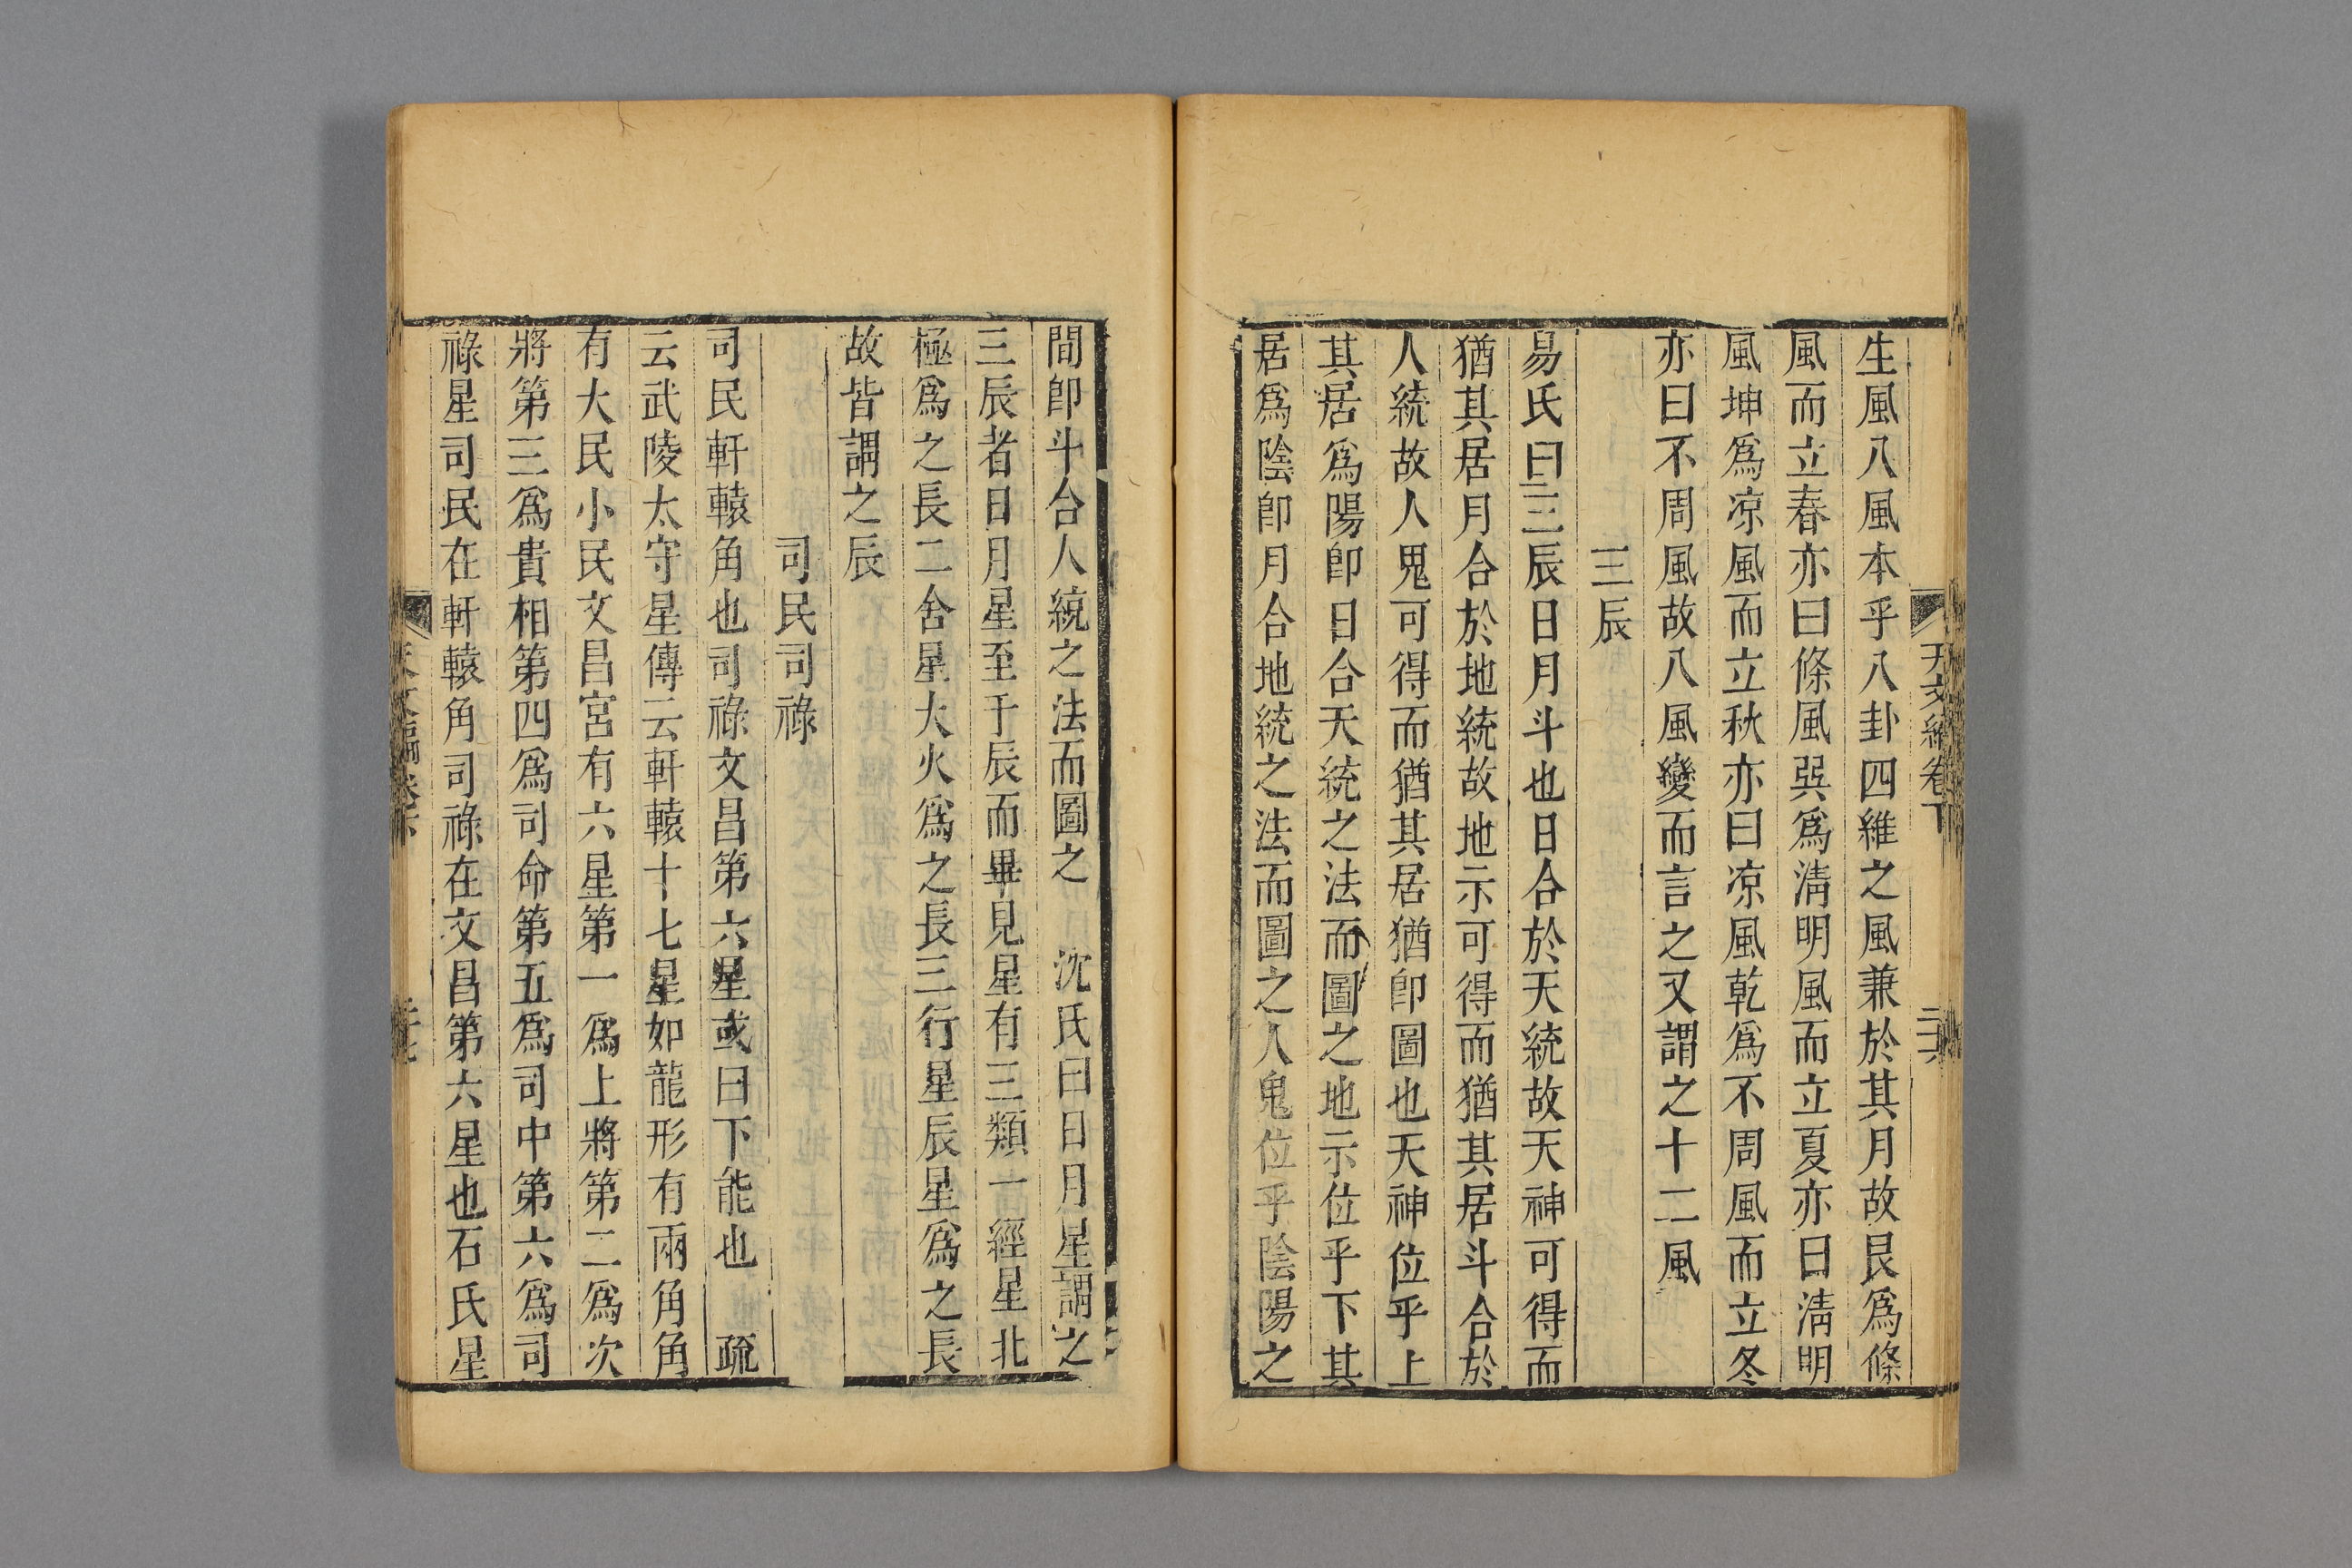 生風八風本乎八卦四維之風兼於其月故艮爲條
風而立春亦曰條風巽爲淸明風而立夏亦曰淸明
風坤爲凉風而立秋亦曰凉風乾爲不周風而立冬
亦曰不周風故八風變而言之又謂之十二風
三辰
易氏曰三辰日月斗也日合於天統故天神可得而
猶其居月合於地統故地示可得而猶其居斗合於
人統故人鬼可得而猶其居猶卽圖也天神位乎上
其居爲陽卽日合天統之法而圖之地示位乎下其
居爲陰卽月合地統之法而圖之人鬼位乎陰陽之
間卽斗合人統之法而圖之 沈氏曰日月星謂之
三辰者日月星至于辰而畢見星有三類一經星北
極爲之長二舍星大火爲之長三行星辰星爲之長
故皆謂之辰
司民司祿
司民軒轅角也司祿文昌第六星或曰下能也 疏
云武陵太守星傳云軒轅十七星如龍形有兩角角
有大民小民文昌宮有六星第一爲上將第二爲次
將第三爲貴相第四爲司命第五爲司中第六爲司
祿星司民在軒轅角司祿在文昌第六星也石氏星